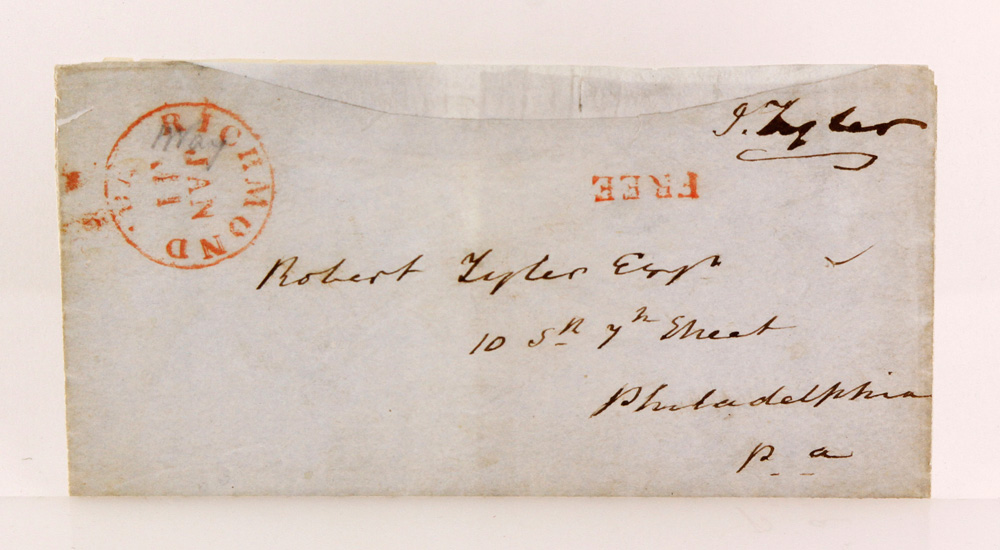 J. Tyler
RICHMOND Va.
JAN
11
May
FREE
Robert Tyler Esqr
10 Sn 7th Street
Philadelphia
Pa